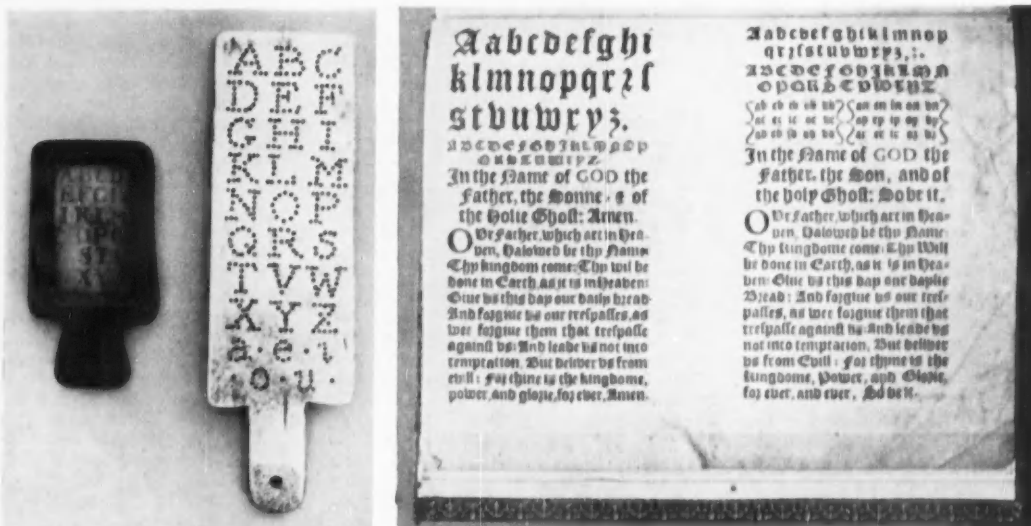 ABCD
EFGH
IKLM
ST
XY
ABC
DEF
GHI
KLM
NOP
QRS
TVW
XYZ
a·e·i
·o·u·
Aabcdefghi
klmnopqrꝛſ
stvuwxyz.
ABCDEFGHIKLMNOP
QRSTUWXYZ
In the Name of GOD the
Father, the Sonne, & of
the Holie Ghost: Amen.
OUr Father, which art in Hea-
ven, Halowed be thy Name
Thy kingdom come: Thy wil be
done in Earth, as it is in Heaven:
Give us this day our daily bread
And forgive us our trespasses, as
wee forgive them that trespasse
against us: And leade us not into
temptation, But deliver us from
evill: For thine is the kingdome,
power, and glorie, for ever, Amen.
Aabcdefghiklmnop
qrꝛſstuvwxyz,:.
ABCDEFGHIKLMN
OPQRSTVWXYZ
ab eb ib ob ub an en in on un
ac ec ic oc uc ap ep ip op up
ad ed id od ud ar er ir or ur
In the Name of GOD the
Father, the Son, and of
the holy Ghost: So be it.
OUr Father, which art in Hea-
ven, Halowed be thy Name:
Thy kingdome come: Thy Will
be done in Earth, as it is in Hea-
ven: Give us this day our daylie
Bread: And forgive us our tres-
passes, as wee forgive them that
trespasse against us: And leade us
not into temptation, But deliver
us from Evill: For thyne is the
kingdome, Power, and Glorie,
for ever, and ever, So be it.